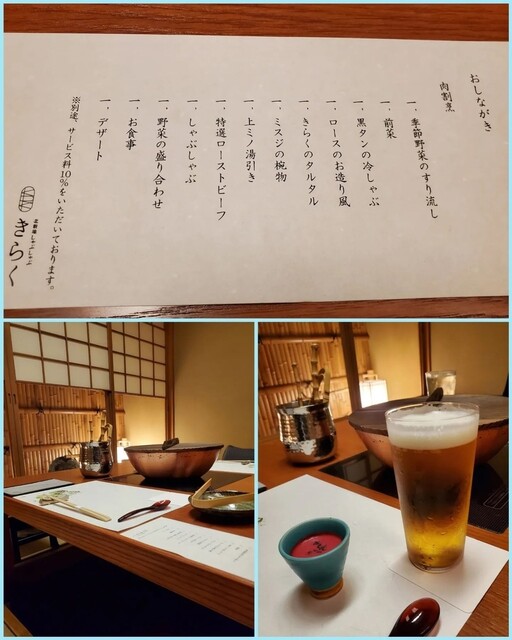 おしながき
肉割烹
一、季節野菜のすり流し
一、前菜
一、黒タンの冷しゃぶ
一、ロースのお造り風
一、きらくのタルタル
一、ミスジの椀物
一、上ミノ湯引き
一、特選ローストビーフ
一、しゃぶしゃぶ
一、野菜の盛り合わせ
一、お食事
一、デザート
※別途、サービス料10％をいただいております。
北新地しゃぶしゃぶ
きらく